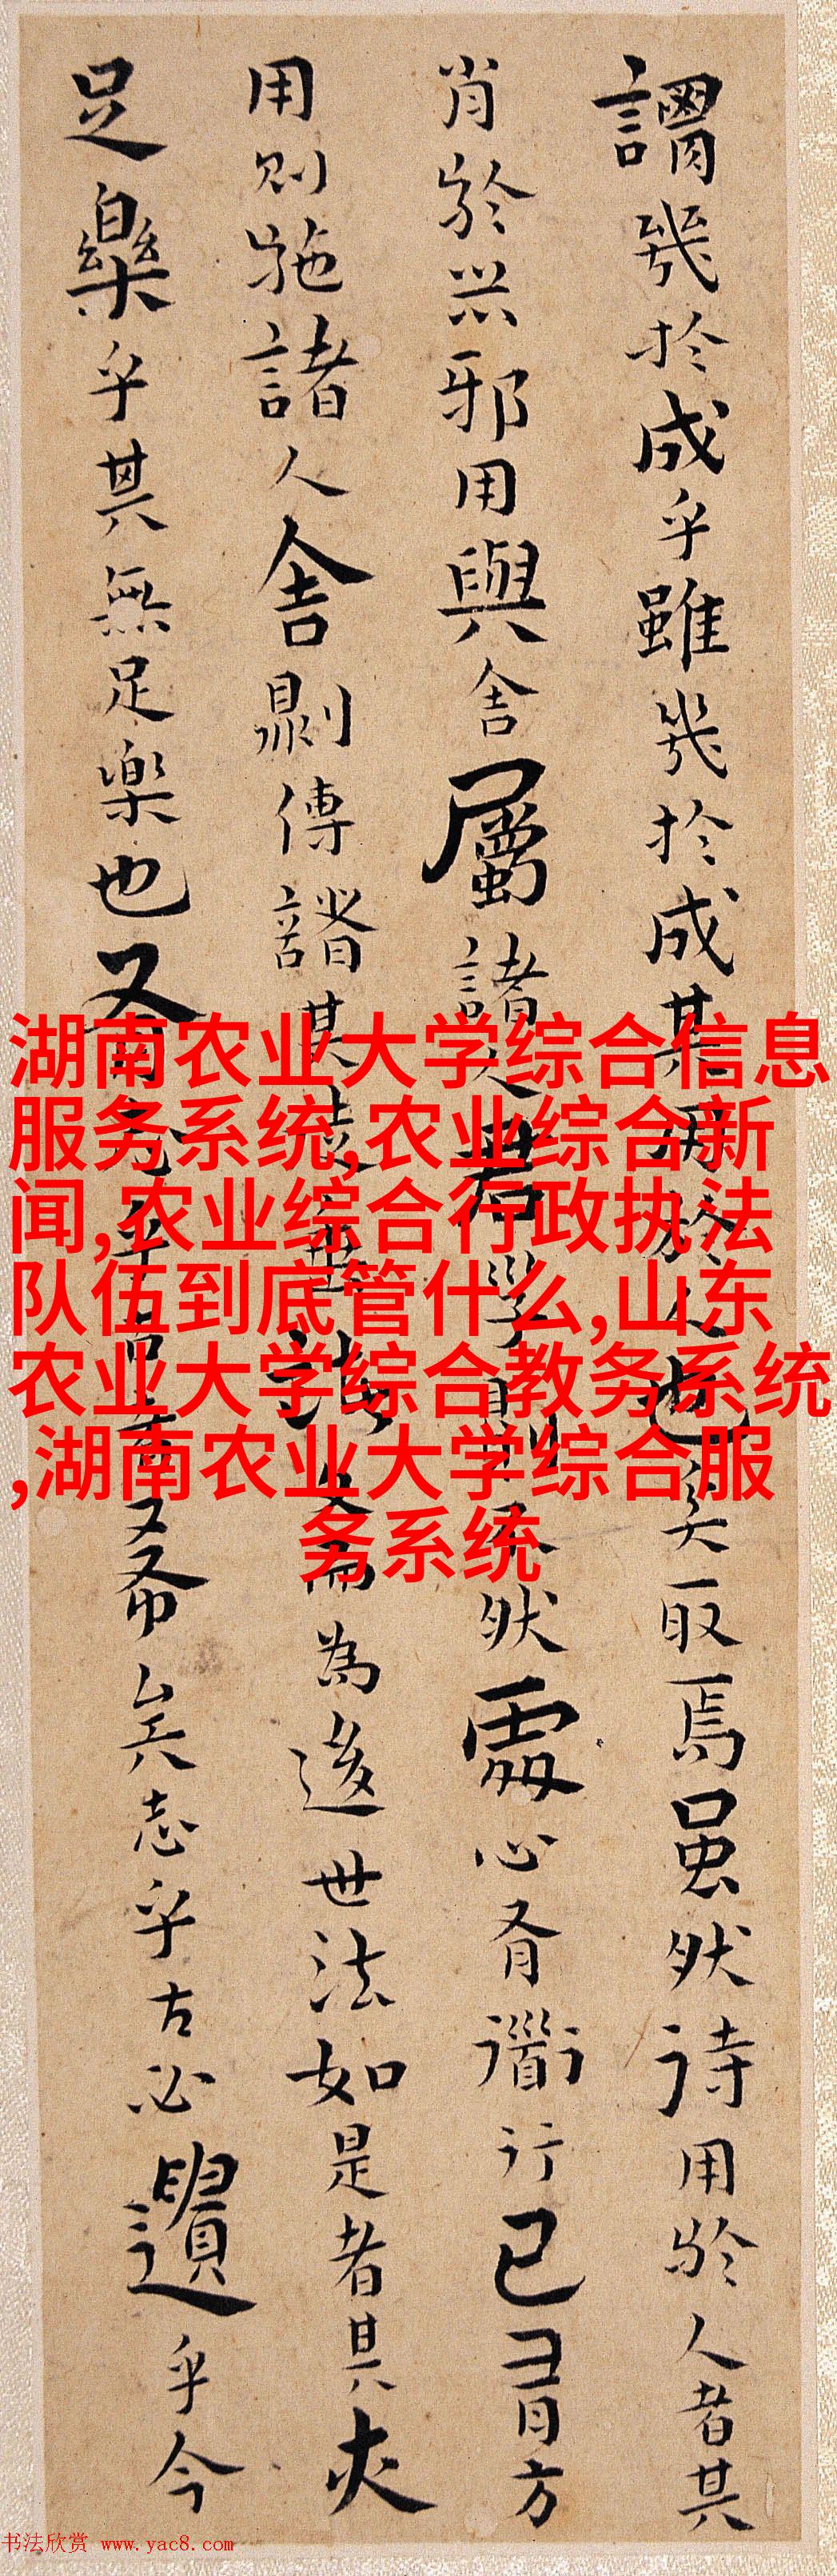 謂幾於成乎雖幾於成其用於人也奚取焉雖然待用於人者其
肖於器邪用與舍屬諸人君子則不然處心有道行己有方
用則施諸人舍則傳諸其徒垂諸文而為後世法如是者其亦
足樂乎其無足樂也有志乎古者希矣志乎古必遺乎今
湖南农业大学综合信息
服务系统,农业综合新
闻,农业综合行政执法
队伍到底管什么,山东
农业大学综合教务系统
,湖南农业大学综合服
务系统
书法欣赏 www.yac8.com